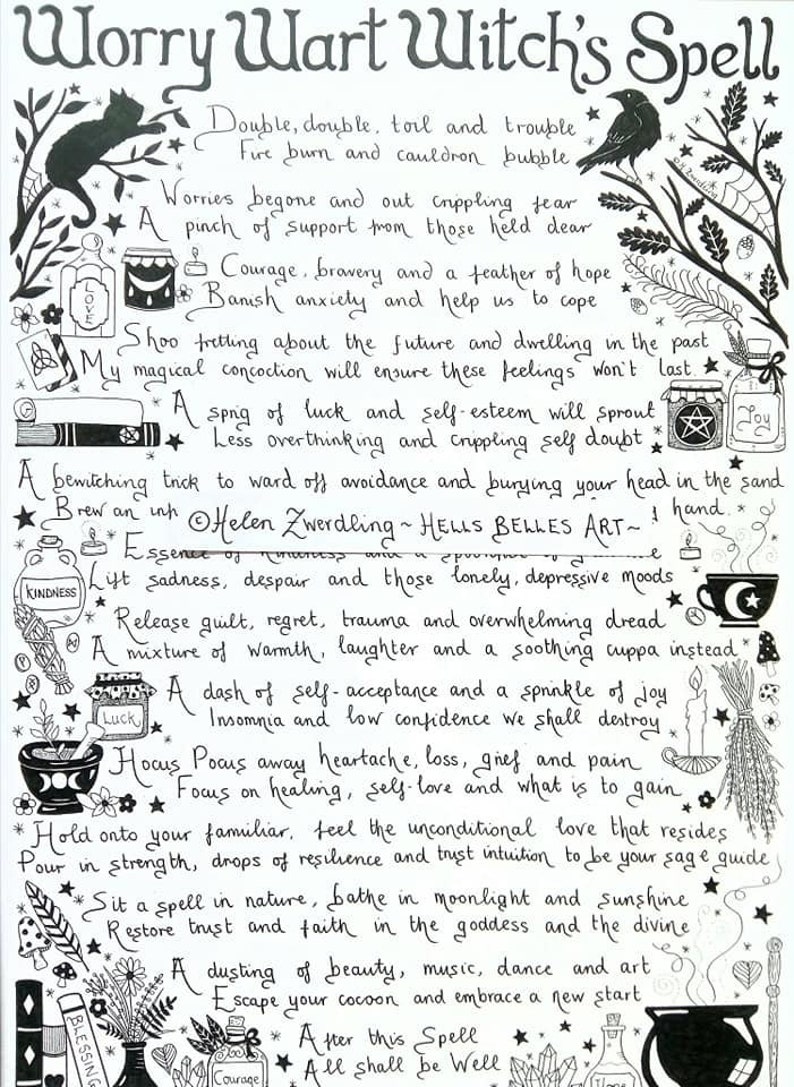 Worry Wart Witch's Spell
Double, double, toil and trouble
Fire burn and cauldron bubble
©H. Zwerdling
Worries begone and out crippling fear
A pinch of support from those held dear
Courage, bravery and a feather of hope
Banish anxiety and help us to cope
LOVE
Shoo fretting about the future and dwelling in the past
My magical concoction will ensure these feelings won't last.
A sprig of luck and self-esteem will sprout
Less overthinking and crippling self doubt
Joy
A bewitching trick to ward off avoidance and burying your head in the sand
Brew an hand.
©Helen Zwerdling ~ HELLS BELLES ART ~
Essence of kindness and a
Lift sadness, despair and those lonely, depressive moods
KINDNESS
Release guilt, regret, trauma and overwhelming dread
A mixture of warmth, laughter and a soothing cuppa instead
A dash of self-acceptance and a sprinkle of joy
Insomnia and low confidence we shall destroy
Luck
Hocus Pocus away heartache, loss, grief and pain
Focus on healing, self-love and what is to gain
Hold onto your familiar, feel the unconditional love that resides
Pour in strength, drops of resilience and trust intuition to be your sage guide
Sit a spell in nature, bathe in moonlight and sunshine
Restore trust and faith in the goddess and the divine
A dusting of beauty, music, dance and art
Escape your cocoon and embrace a new start
BLESSING
After this Spell
All shall be Well
Courage
Hope